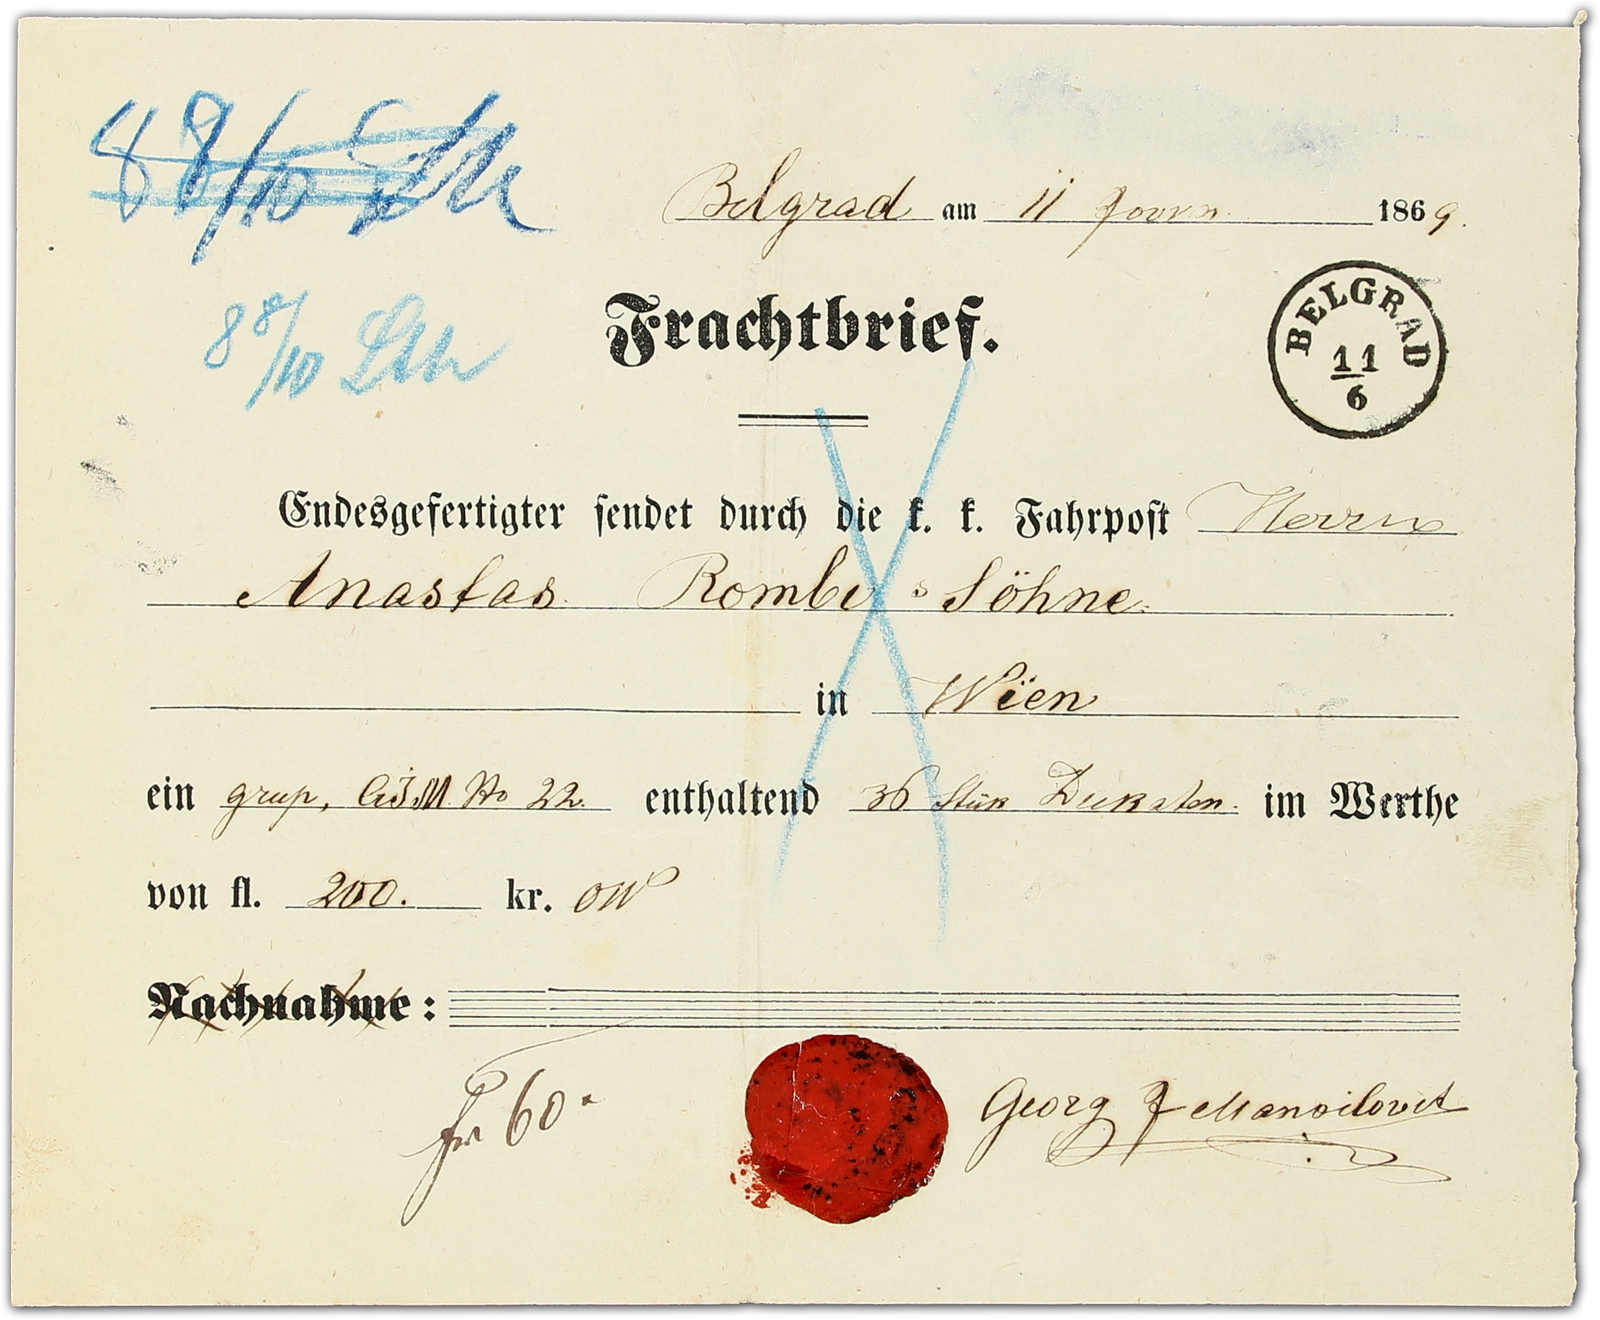 8 8/10 Lth
Belgrad am 11 Juni 1869.
8 8/10 Lth
Frachtbrief.
BELGRAD
11
6
Endesgefertigter sendet durch die k. k. Fahrpost Herrn
Anastas Söhne
in Wïen
ein grup, GJM No 22 enthaltend 36 Stük Dukaten. im Werthe
von fl. 200. kr. OW
Nachnahme:
fr 60.
Georg J Manoilovit